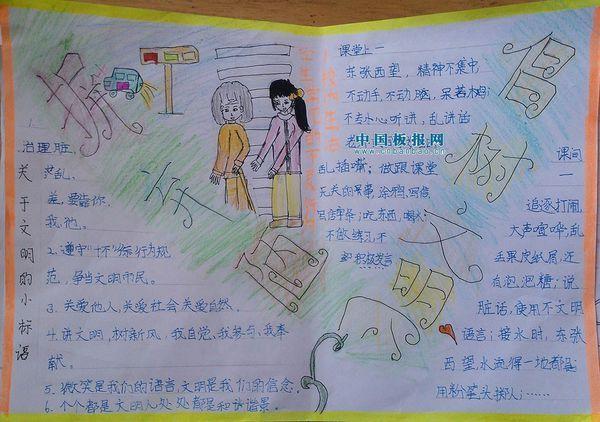 关于文明的小标语
治理脏、
乱、
差,要靠你、
我、他。
2、遵守"十不"标行为规
范,争当文明市民。
3、关爱他人,关爱社会关爱自然。
4、讲文明,树新风,我自觉,我参与,我奉
献。
5、微笑是我们的语言,文明是我们的信念。
6、个个都是文明人处处都是和谐景。
课堂上一
东张西望,精神不集中
不动手,不动脑,呆若木鸡
不专心听讲,乱讲话
中国板报网
www.cnbanbao.cn
乱插嘴;做跟课堂
不做练习不
积极发言
倡
树
文
明
课间
一
追逐打闹,
大声喧哗,乱
丢果皮纸屑,还
有泡泡糖;说
脏话,使用不文明
语言;接水时,东张
西望,水流得一地都是;
用粉笔头掷人;……